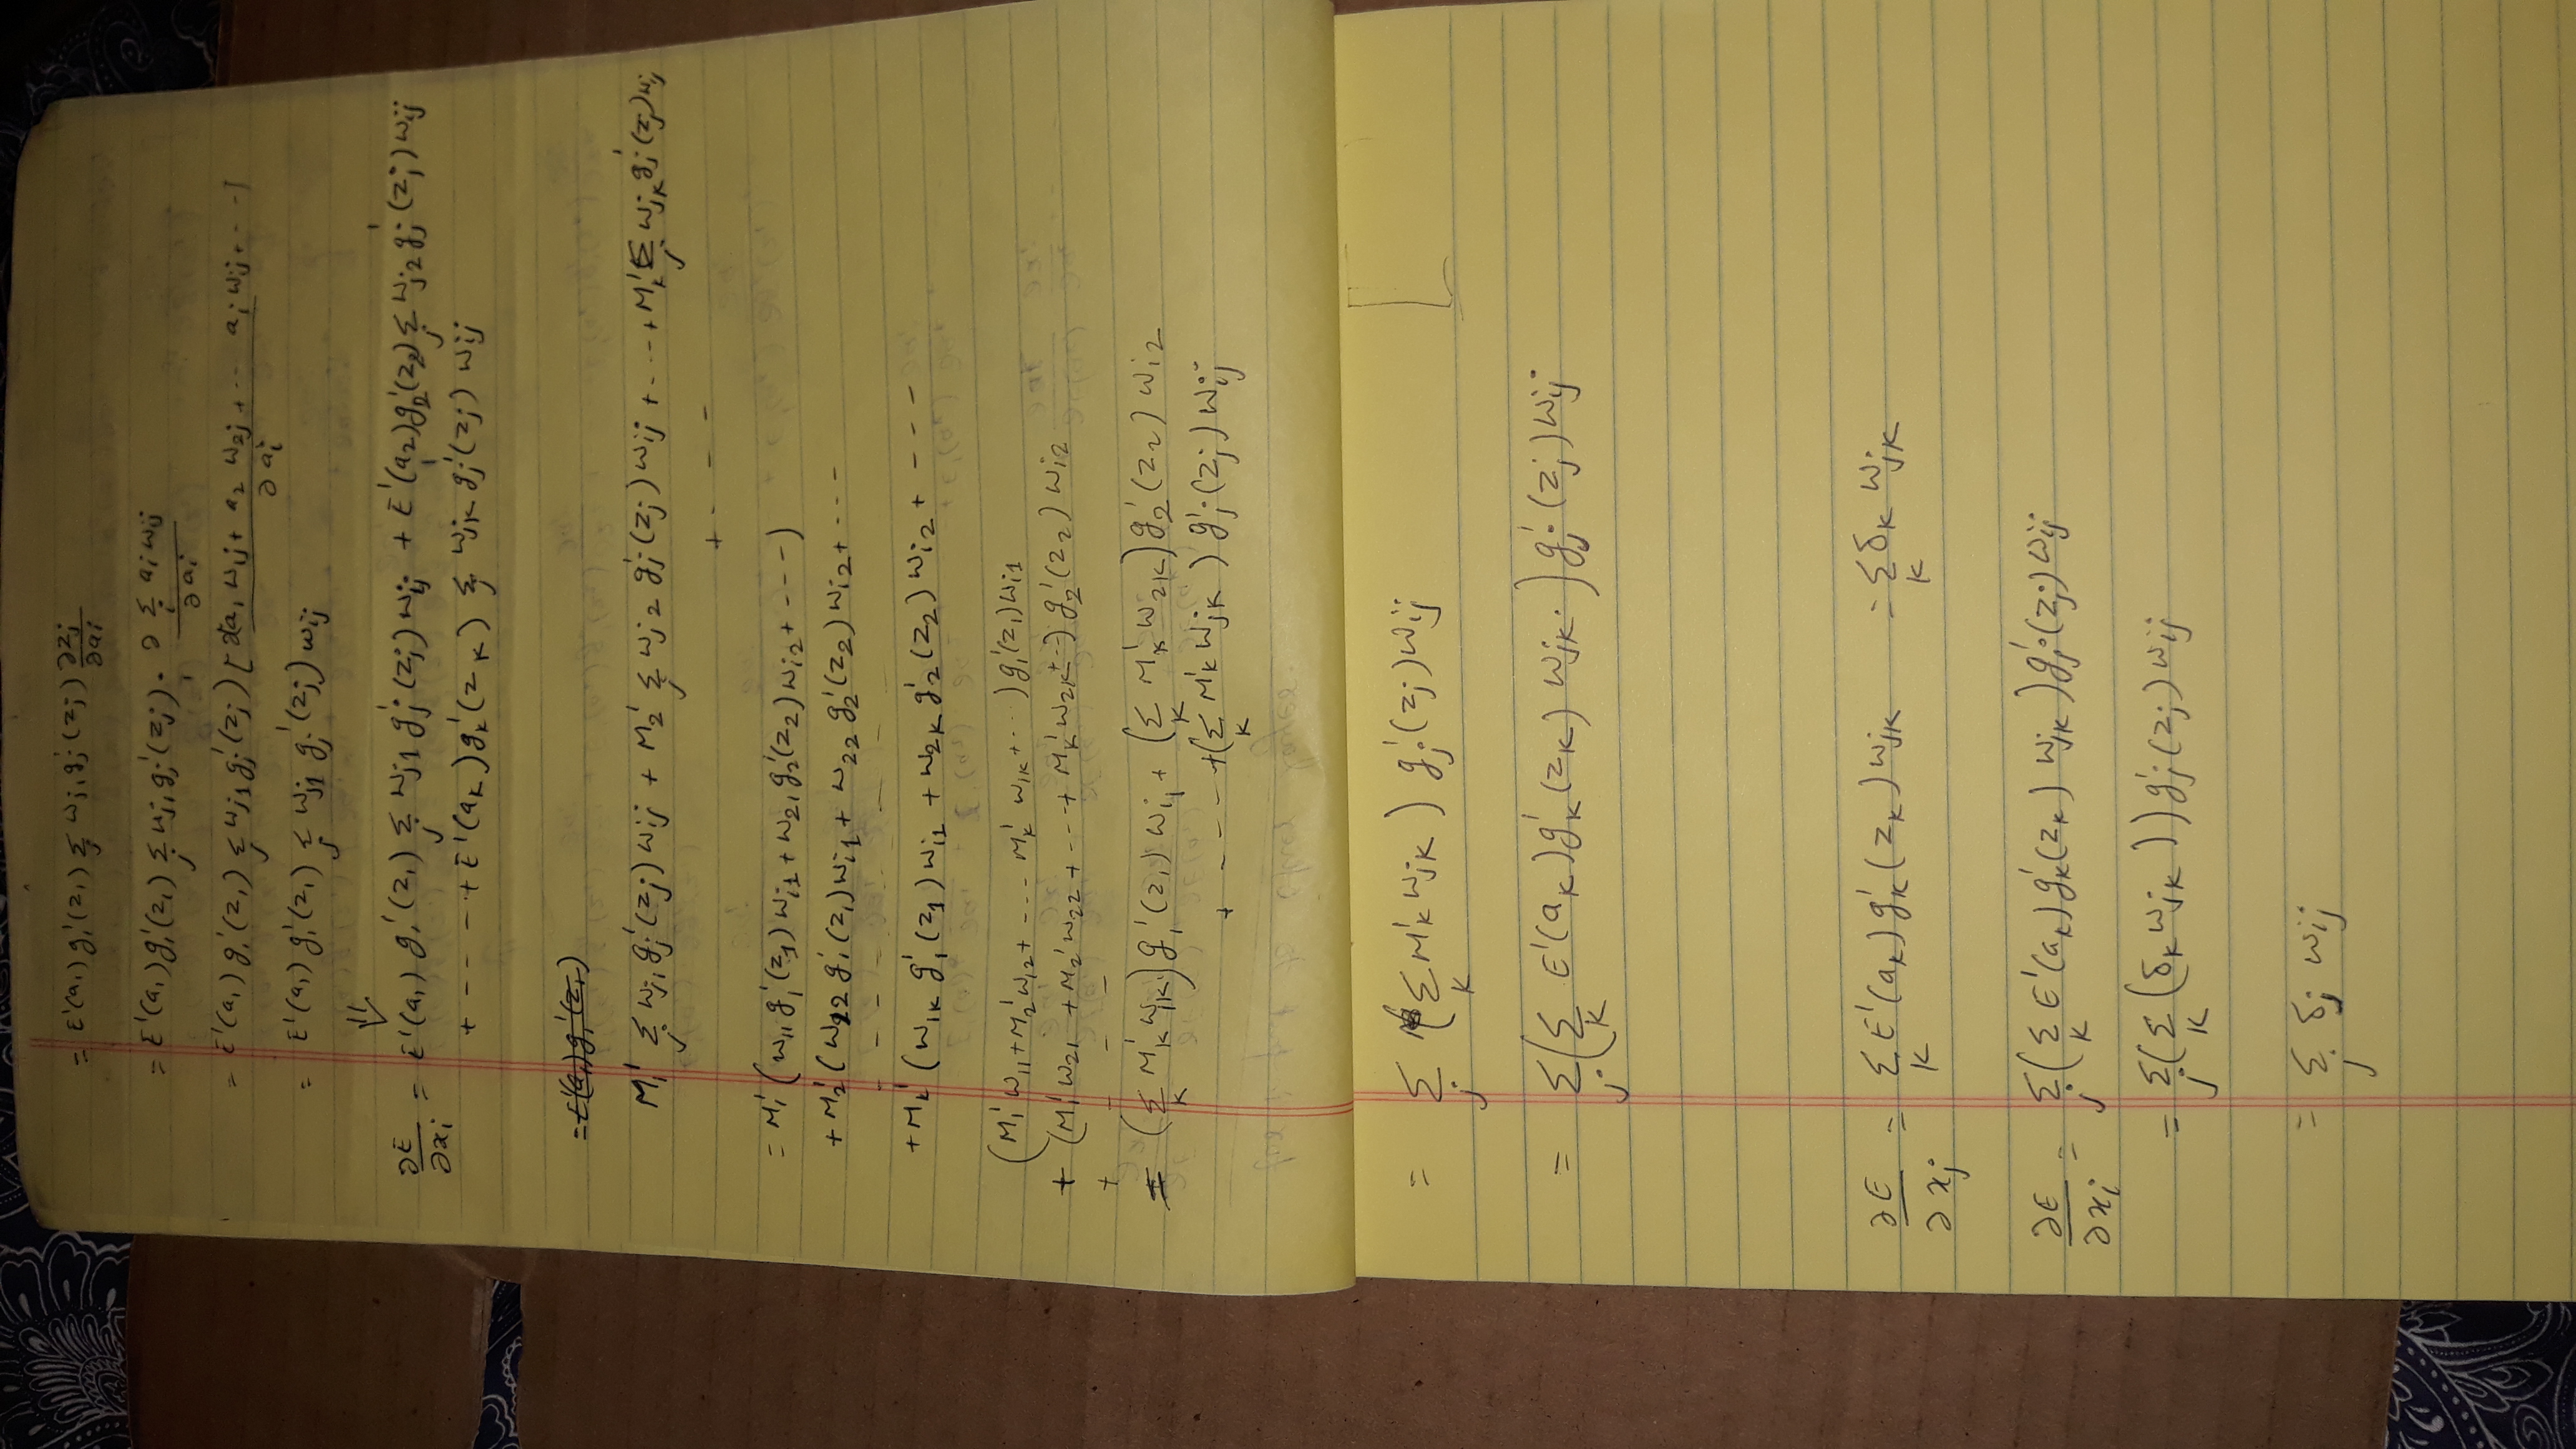 = E'(a₁) g₁'(z₁) Σ_j w_j₁ g_j'(z_j) ∂z_j/∂a_i
= E'(a₁) g₁'(z₁) Σ_j w_j₁ g_j'(z_j) . ∂ Σ_i a_i w_ij / ∂a_i
= E'(a₁) g₁'(z₁) Σ_j w_j1 g_j'(z_j) [ ∂a₁ w_1j + a₂ w_2j + -- a_i w_ij + --- ] / ∂a_i
= E'(a₁) g₁'(z₁) Σ_j w_j1 g_j'(z_j) w_ij
⇓
∂E/∂x_i = E'(a₁) g₁'(z₁) Σ_j w_j1 g_j'(z_j) w_ij + E'(a₂) g₂'(z₂) Σ_j w_j2 g_j'(z_j) w_ij
+ ---- + E'(a_K) g_K'(z_K) Σ_j w_jK g_j'(z_j) w_ij
= E'(a₁) g₁'(z₁)
M₁' Σ_j w_j₁ g_j'(z_j) w_ij + M₂' Σ_j w_j2 g_j'(z_j) w_ij + ... + M_K' Σ_j w_jK g_j'(z_j) w_ij
+ - - -
= M₁' ( w₁₁ g₁'(z₁) w_i1 + w₂₁ g₂'(z₂) w_i2 + --- )
+ M₂' ( w₁₂ g₁'(z₁) w_i1 + w₂₂ g₂'(z₂) w_i2 + ---
- - - - - - - - -
+ M_K' ( w_1K g₁'(z₁) w_i1 + w_2K g₂'(z₂) w_i2 + ---
( M₁' w₁₁ + M₂' w₁₂ + ---- M_K' w_1K + --- ) g₁'(z₁) w_i1
+ ( M₁' w₂₁ + M₂' w₂₂ + --- + M_K' w_2K + -- ) g₂'(z₂) w_i2
+ - - -
= ( Σ_K M_K' w_1K ) g₁'(z₁) w_i₁ + ( Σ_K M_K' w_2K ) g₂'(z₂) w_i2
+ ---- + ( Σ_K M_K' w_jK ) g_j'(z_j) w_ij
= Σ_j ( Σ_K M_K' w_jK ) g_j'(z_j) w_ij
= Σ_j ( Σ_K E'(a_K) g_K'(z_K) w_jK . ) g_j'(z_j) w_ij
∂E/∂x_j = Σ_K E'(a_K) g_K'(z_K) w_jK = Σ_K δ_K w_jK
∂E/∂x_i = Σ_j ( Σ_K E'(a_K) g_K'(z_K) w_jK ) g_j'(z_j) w_ij
= Σ_j ( Σ_K ( δ_K w_jK ) ) g_j'(z_j) w_ij
= Σ_j δ_j w_ij